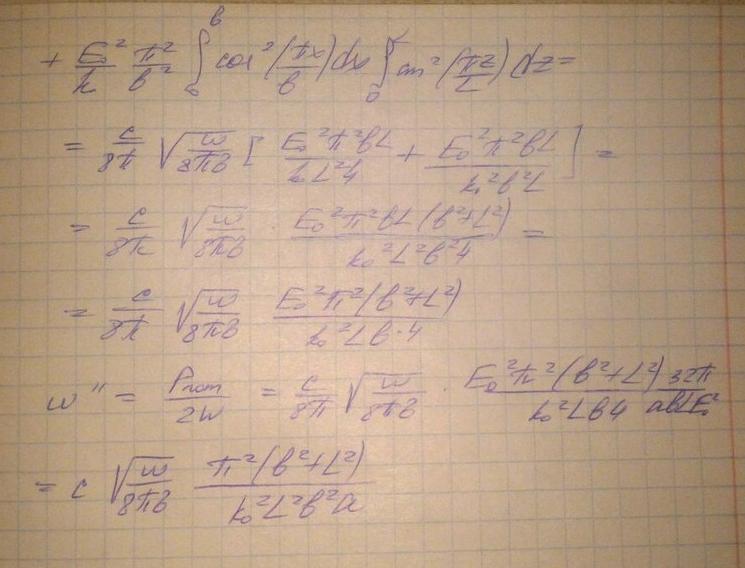 + E₀²/k · π²/b² ∫₀ᵇ cos²(πx/b)dx ∫₀ᴸ sin²(πz/L)dz =
= c/8π √(ω/8πσ) [ E₀²π²bL/k₀²L²4 + E₀²π²bL/k₀²b²L ] =
= c/8π √(ω/8πσ) · E₀²π²bL(b²+L²)/k₀²L²b²4 =
= c/8π √(ω/8πσ) E₀²π²(b²+L²)/k₀²Lb·4
ω'' = Pпот/2W = c/8π √(ω/8πσ) · E₀²π²(b²+L²)32π/k₀²Lb4 abLE₀²
= c √(ω/8πσ) π²(b²+L²)/k₀²L²b²a